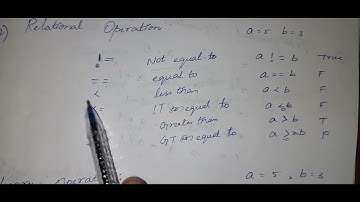 Relational Operation a = 5 b = 3
!= Not equal to a != b True
== equal to a == b F
< less than a < b F
<= LT or equal to a ≤ b F
Greater than a > b T
GT or equal to a ≥ b F
a = 5, b = 3